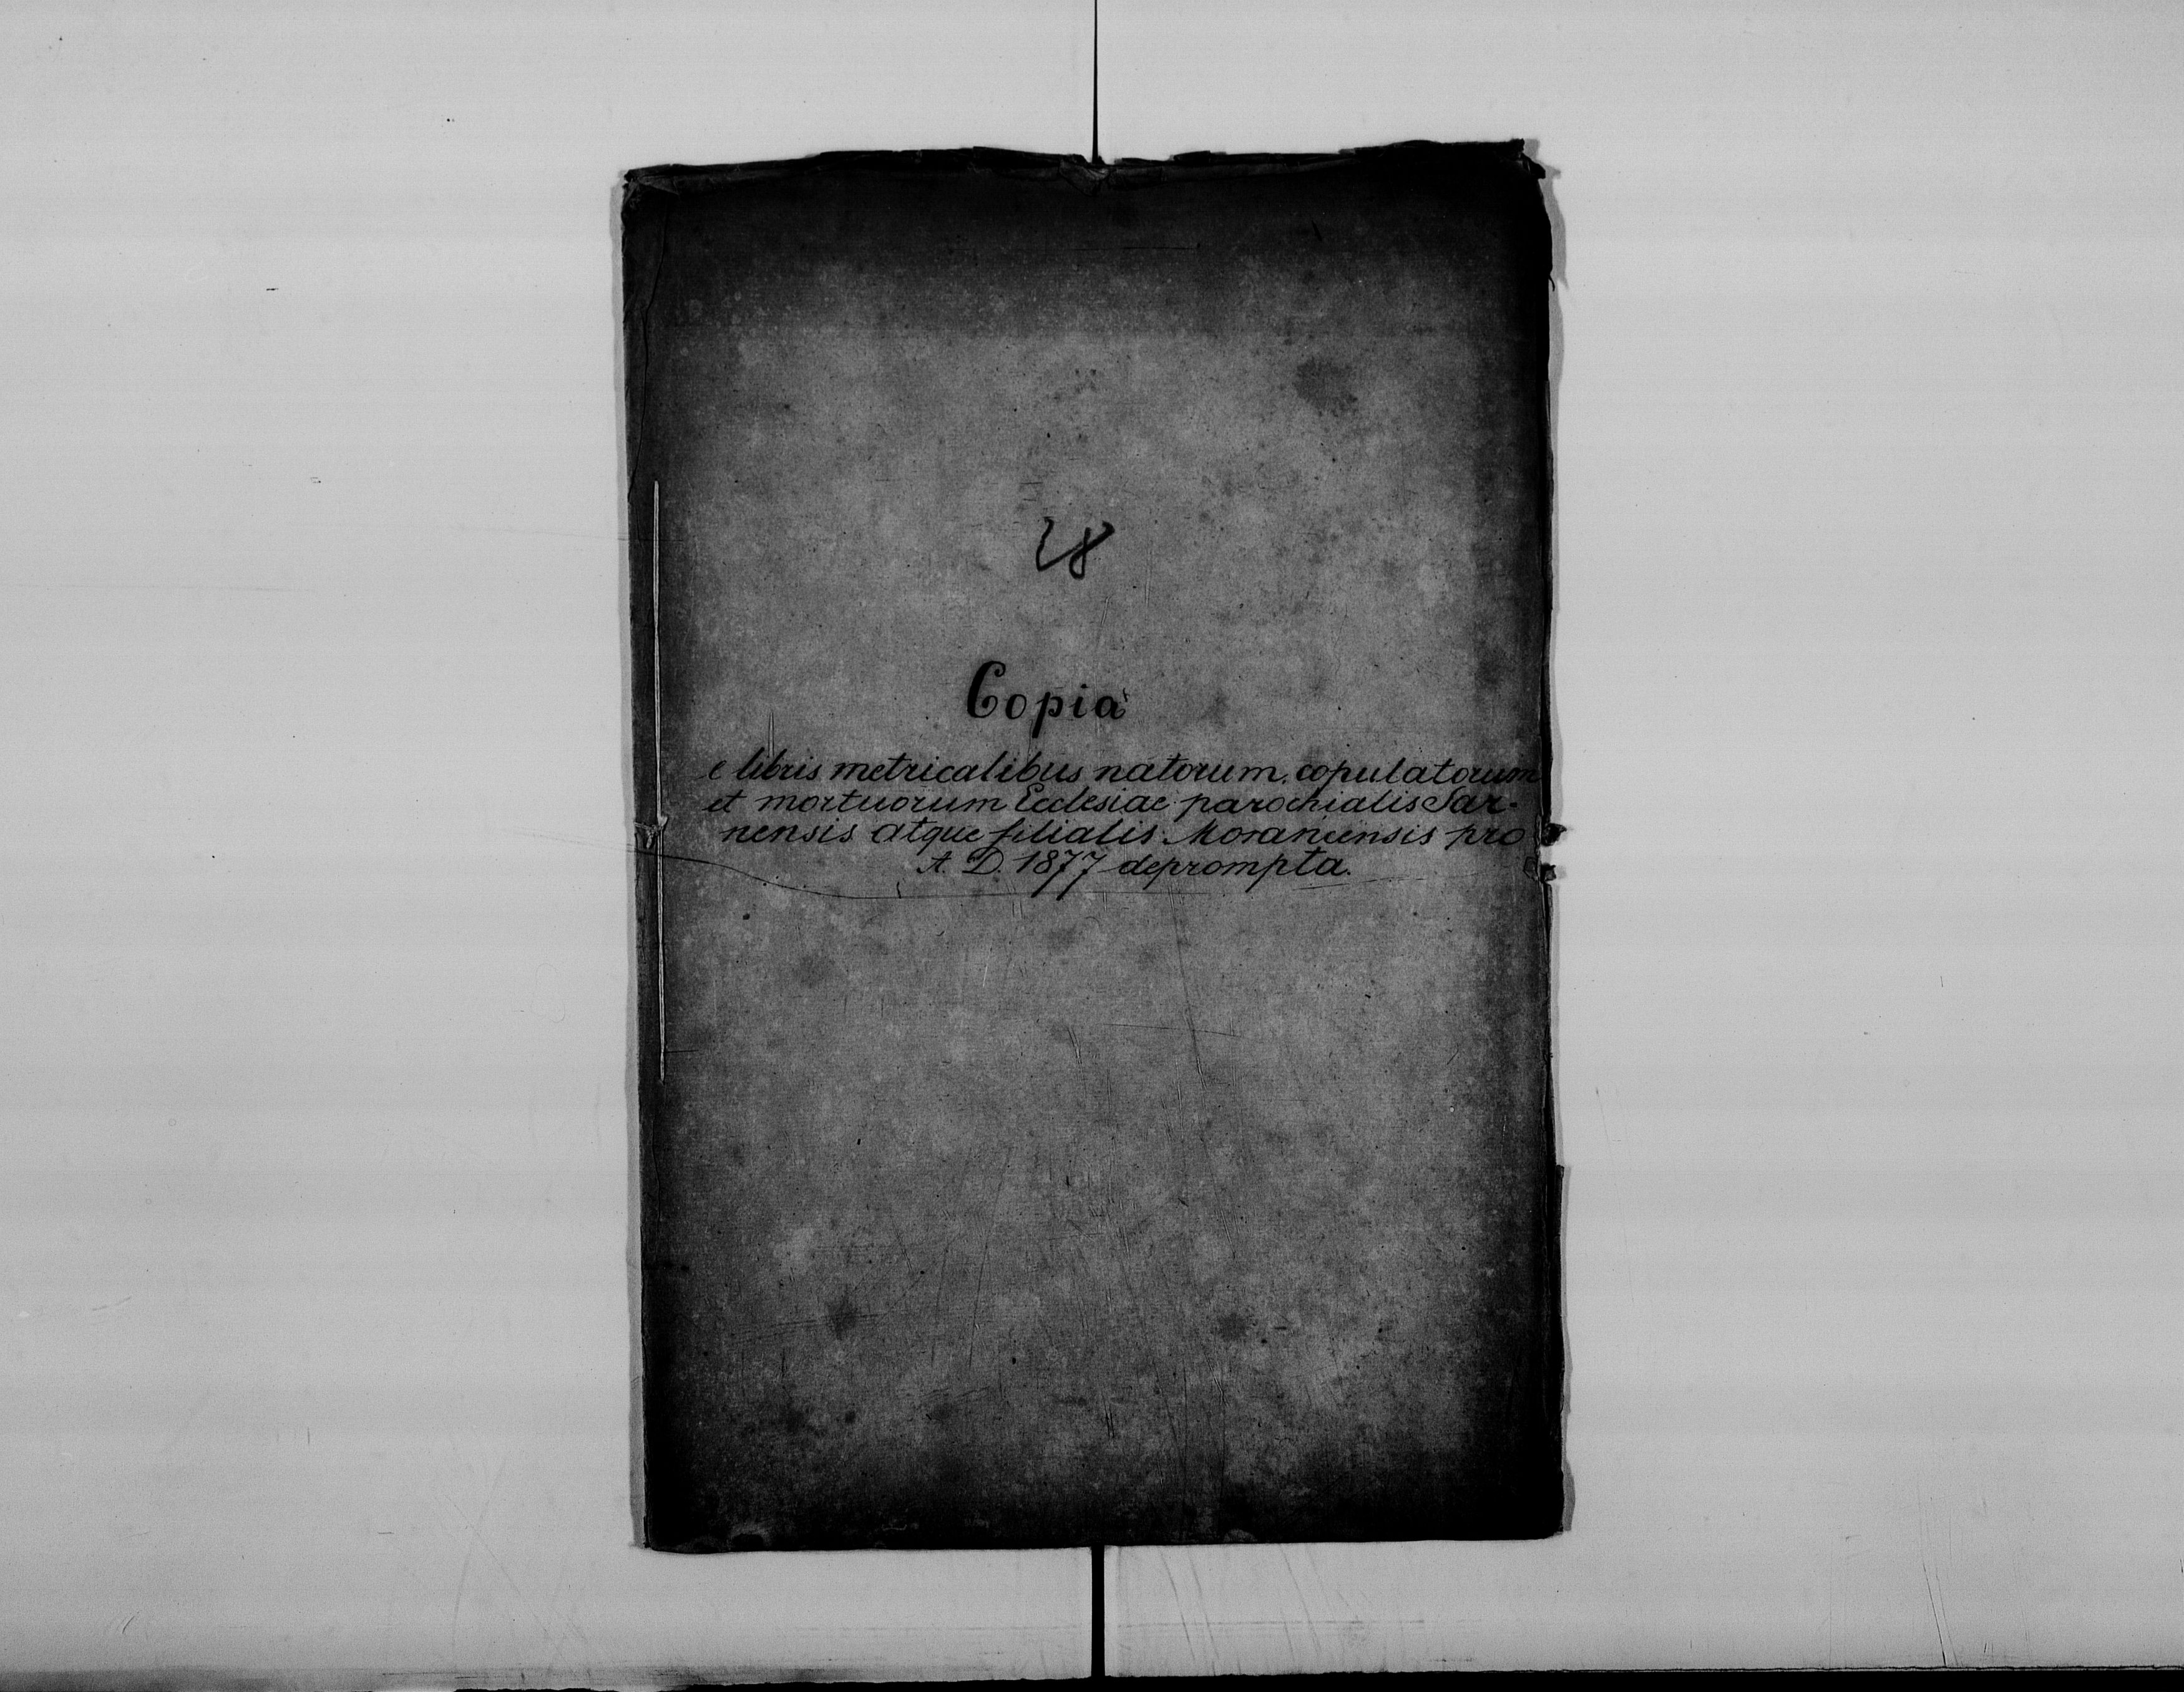 28
Copia
e libris metricalibus natorum, copulatorum
et mortuorum Ecclesiae parochialis Sar-
nensis atque filialis Moraniensis pro
A. D. 1877 deprompta.